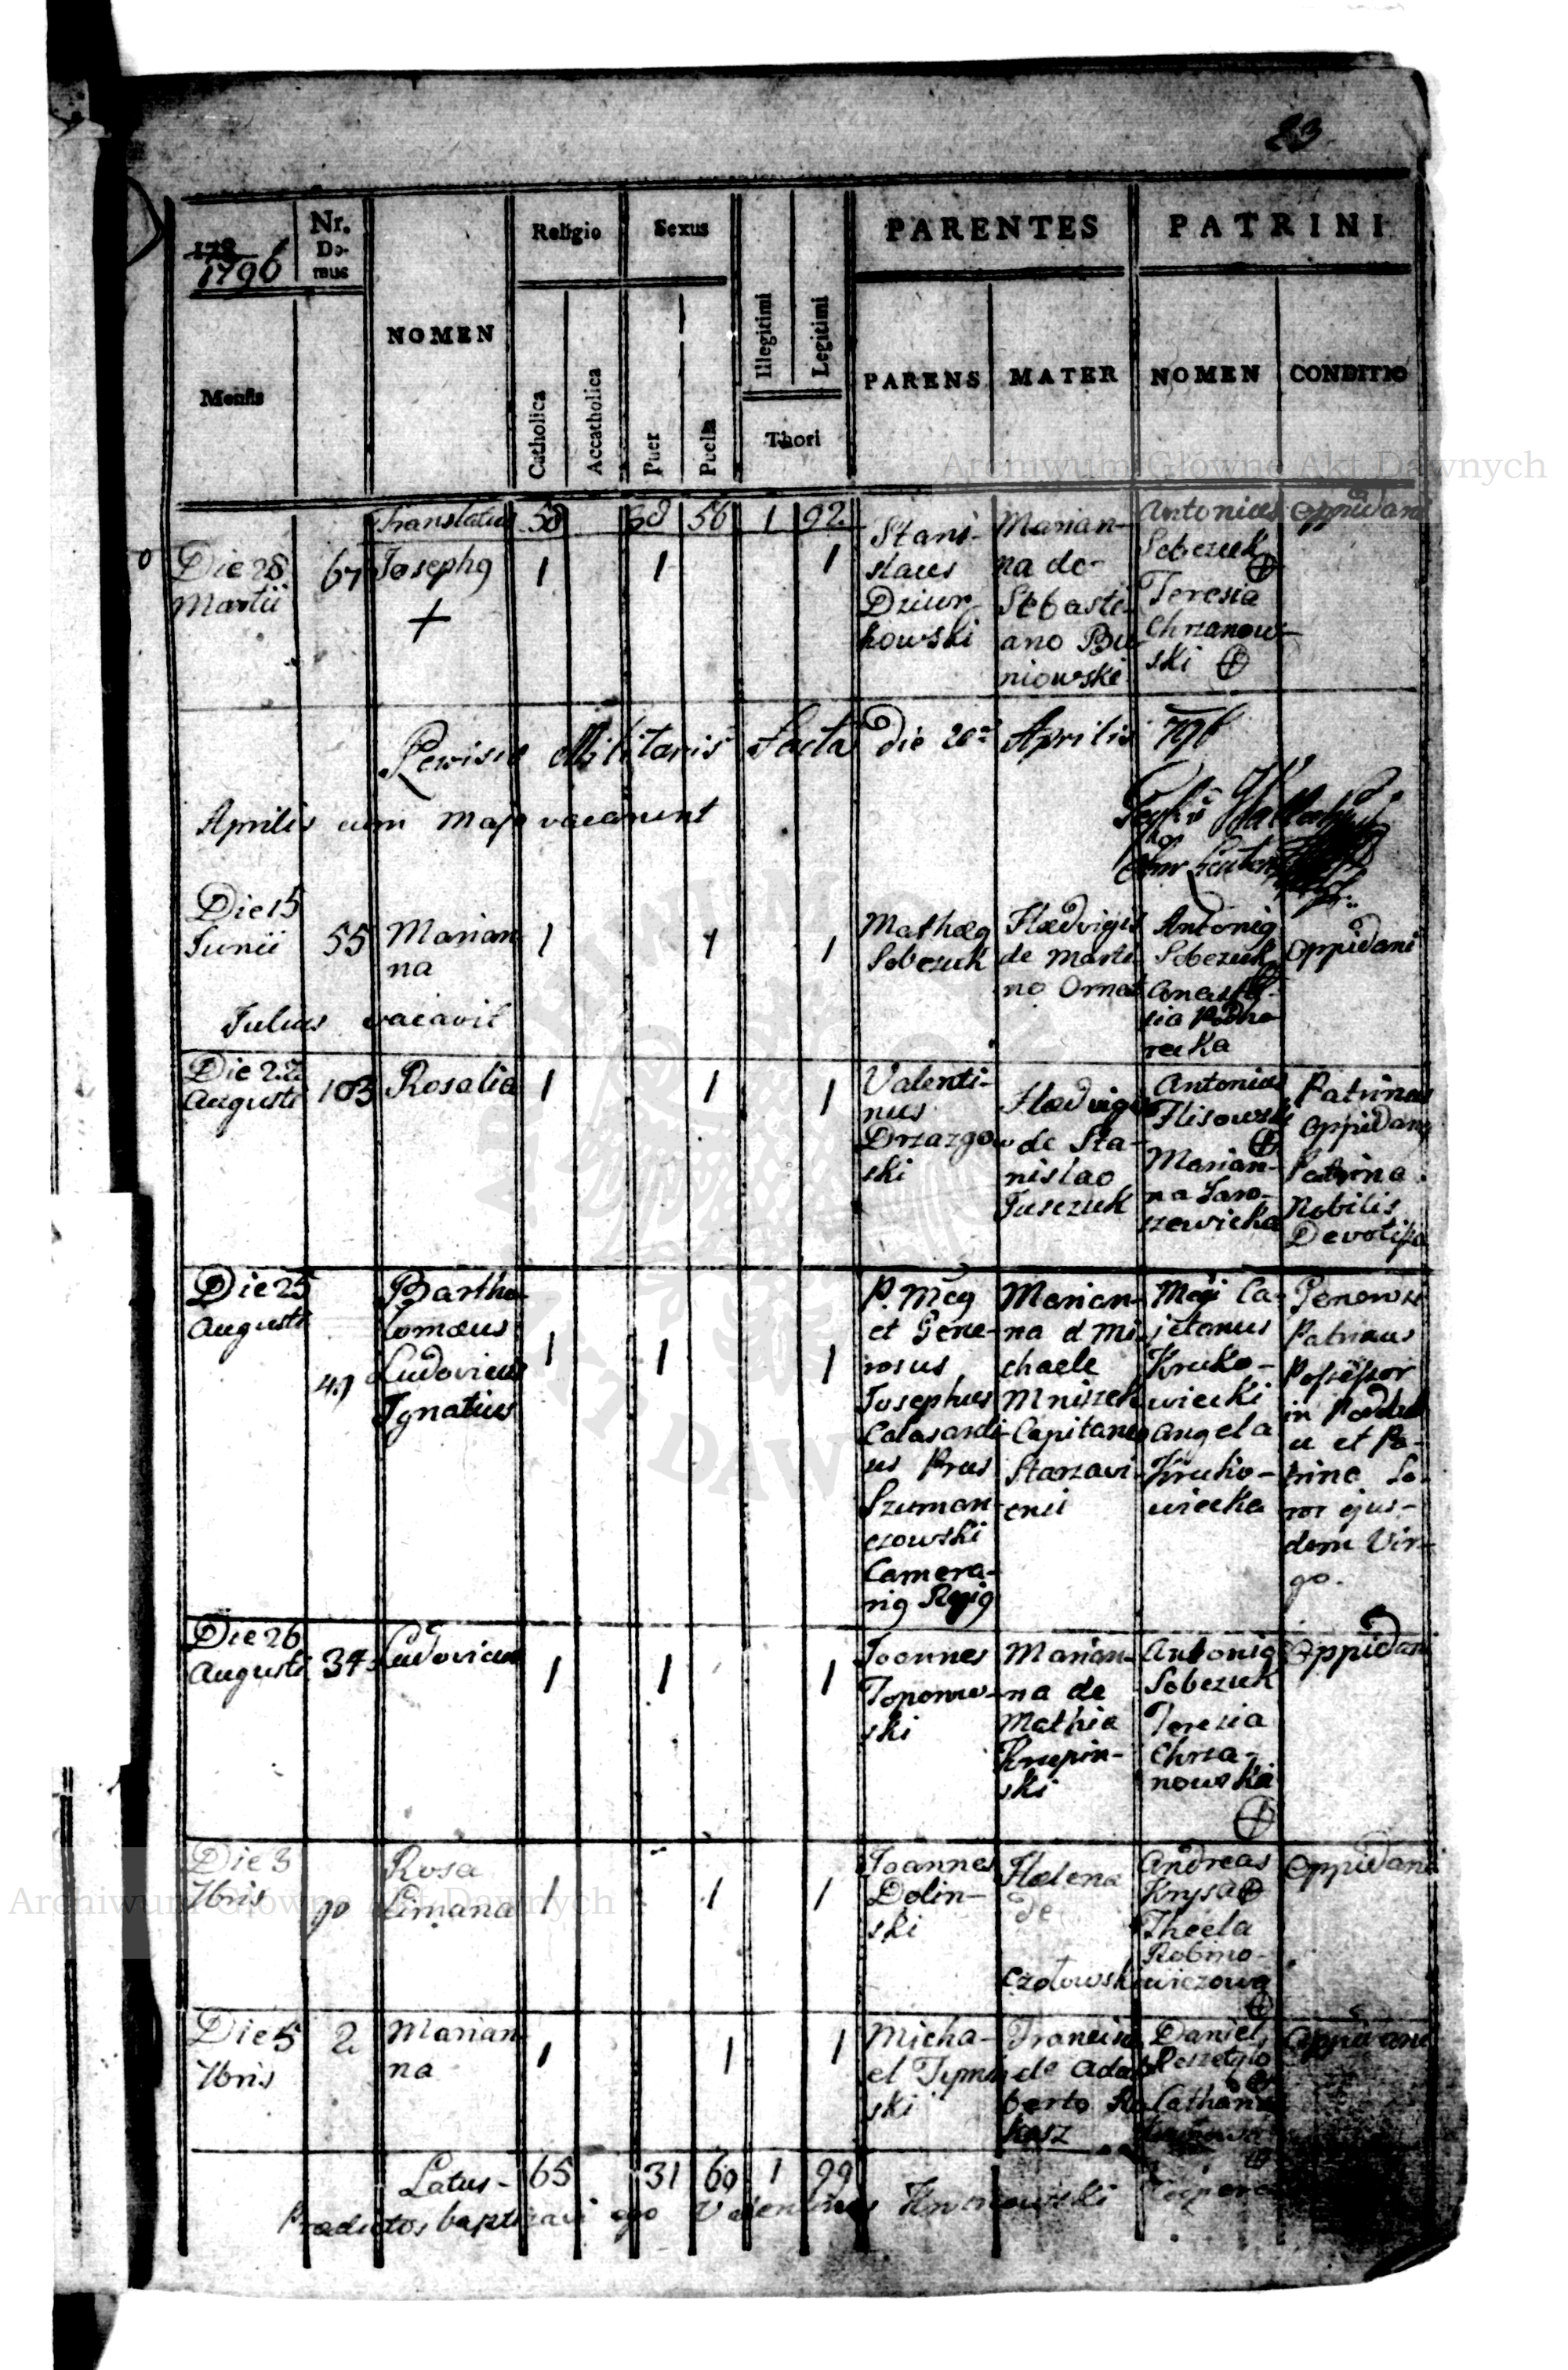 23
178
1796
Nr. Domus
Mensis
NOMEN
Religio
Catholica
Accatholica
Sexus
Puer
Puella
Illegitimi
Legitimi
Thori
PARENTES
PARENS
MATER
PATRINI
NOMEN
CONDITIO
Archiwum Główne Akt Dawnych
Translatus 58 56 1 92
Die 28
Martii
67
Joseph9
+
1 1 1
Stani-
slaus
Dziur-
kowski
Marian-
na de
Sebasti-
ano Bu-
niowski
Antonius
Sobczuk
Teresia
Chrzanow-
ski
Oppidani
Revisio Militaris facta Die 20 Aprilis 796
Aprilis cum Majo vacarunt
Die 15
Junii
55
Marian
na
1 1 1
Mathæ9
Sobczuk
Hedvigis
de Marti-
no Ornat
Antoni9
Sobczuk
Anasta-
sia Podho
recka
Oppidani
Julius vacavit
Die 22
Augusti
103
Rosalia
1 1 1
Valenti-
nus
Drzazgow
ski
Hedvigis
de Sta-
nislao
Jusczuk
Antonius
Flisowski
Marian-
na Jaro-
szewicka
Patrinus
Oppidanus
Patrina
Nobilis
Devotissa
Die 25
Augusti
49
Bartho-
lomæus
Ludovicus
Ignatius
1 1 1
P. Mag
et Gene-
rosus
Josephus
Calasanti-
us Prus
Szuman-
czowski
Camera-
ri9 Regi9
Marian-
na d Mi-
chaele
Mniszek
Capitaneo
Starzavi-
enii
Ca-
jetanus
Kruko-
wiecki
Angela
Kruko-
wiecka
Generosi
Patrinus
Possessor
in
et Pa-
trina So-
ror ejus-
dem Vir-
go.
Die 26
Augusti
34
Ludovicus
1 1 1
Joannes
Toporow-
ski
Marian-
na de
Mathia
Krupin-
ski
Antoni9
Sobczuk
Teresia
Chrza-
nowska
Oppidani
Die 3
7bris
90
Rosa
Limana
1 1 1
Joannes
Dolin-
ski
Helena
de
Czołowski
Andreas
Krysa
Thecla
Oppidani
Die 5
7bris
2
Marian
na
1 1 1
Micha-
el Tymin
ski
Francisca
de Adal
berto Ro
kosz
Daniel
Reszetylo
Catharina
Oppidani
Latus - 65 31 60 1 99
Prædictos baptisavi ego Valentinus
Archiwum Główne Akt Dawnych
ARCHIWUM GŁÓWNE AKT DAWNYCH